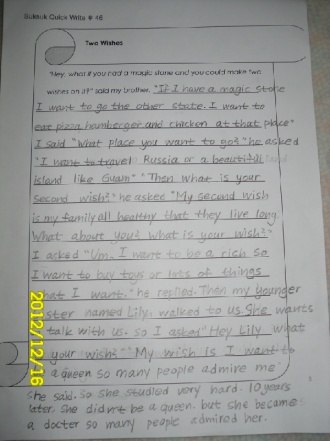 Subsuk Quick Write # 48
Two Wishes
"Hey, what if you had a magic stone and you could make two
wishes on it?" said my brother. "If I have a magic stone
I want to go the other state. I want to
eat pizza, hamberger and chicken at that place"
I said "What place you want to go?" he asked
"I want to travel Russia or a beautiful
island like Guam" "Then what is your
second wish?" he asked "My second wish
is my family all healthy that they live long.
What about you? What is your wish?"
I asked "Um.. I want to be a rich so
I want to buy toys or lots of things
that I want." he replied. Then my younger
ster named Lily walked to us. She wants
talk with us. so I asked "Hey Lily what
your wish?" "My wish is I want to
a queen so many people admire me"
she said. So she studied very hard. 10 years
later, she didn't be a queen. but she became
a docter so many people admired her.
2012/12/16